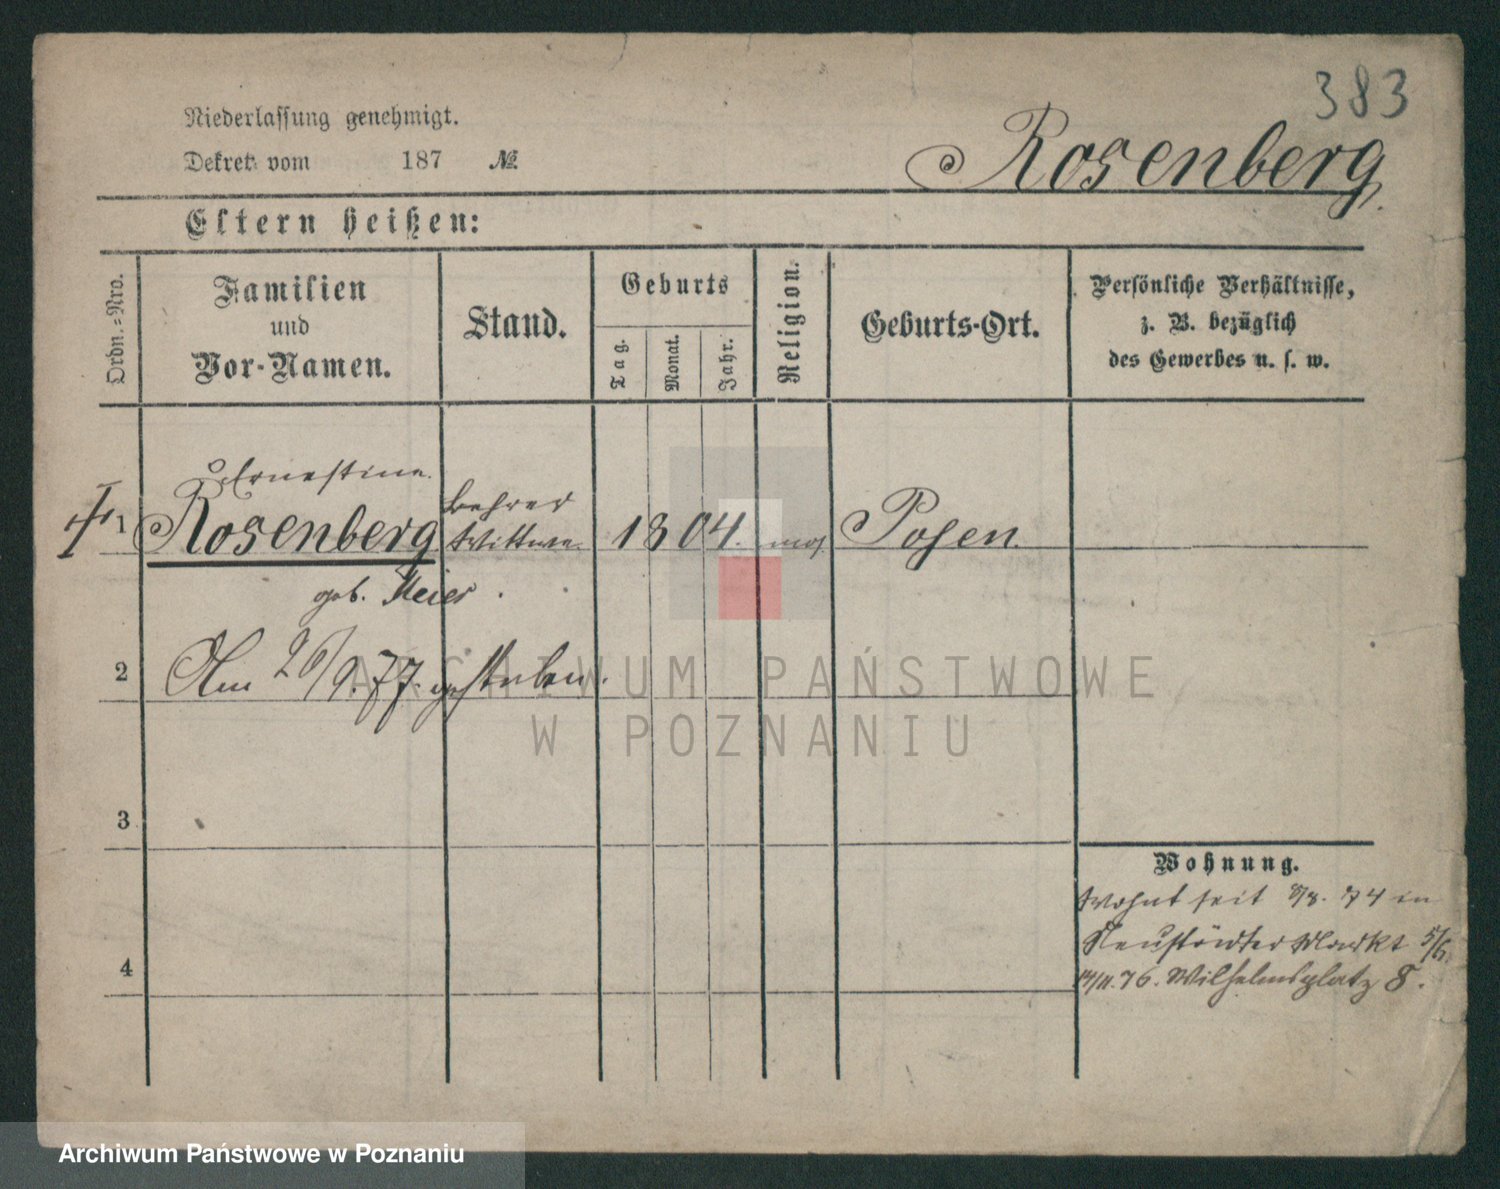 383
Niederlassung genehmigt.
Dekret vom 187 №
Rosenberg,
Eltern heißen:
Ordn.=Nro.
Familien
und
Vor-Namen.
Stand.
Geburts
Tag.
Monat.
Jahr.
Religion.
Geburts-Ort.
Persönliche Verhältnisse,
z. B. bezüglich
des Gewerbes u. s. w.
Ernestine
1 Rosenberg Lehrer Wittwe 1804. mos. Posen.
geb. Meier
2 Am 26/9.77. gestorben.
3
4
Wohnung.
Wohnt seit 8/8. 74 in
Neustädter Markt 5/6.
14/11.76. Wilhelmsplatz 8.
ARCHIWUM PAŃSTWOWE
W POZNANIU
Archiwum Państwowe w Poznaniu